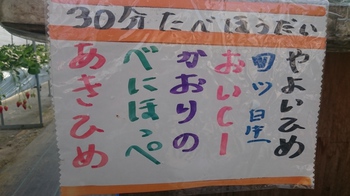 30分たべほうだい
やよいひめ
四ツ星
おいCー
かおりの
べにほっぺ
あきひめ